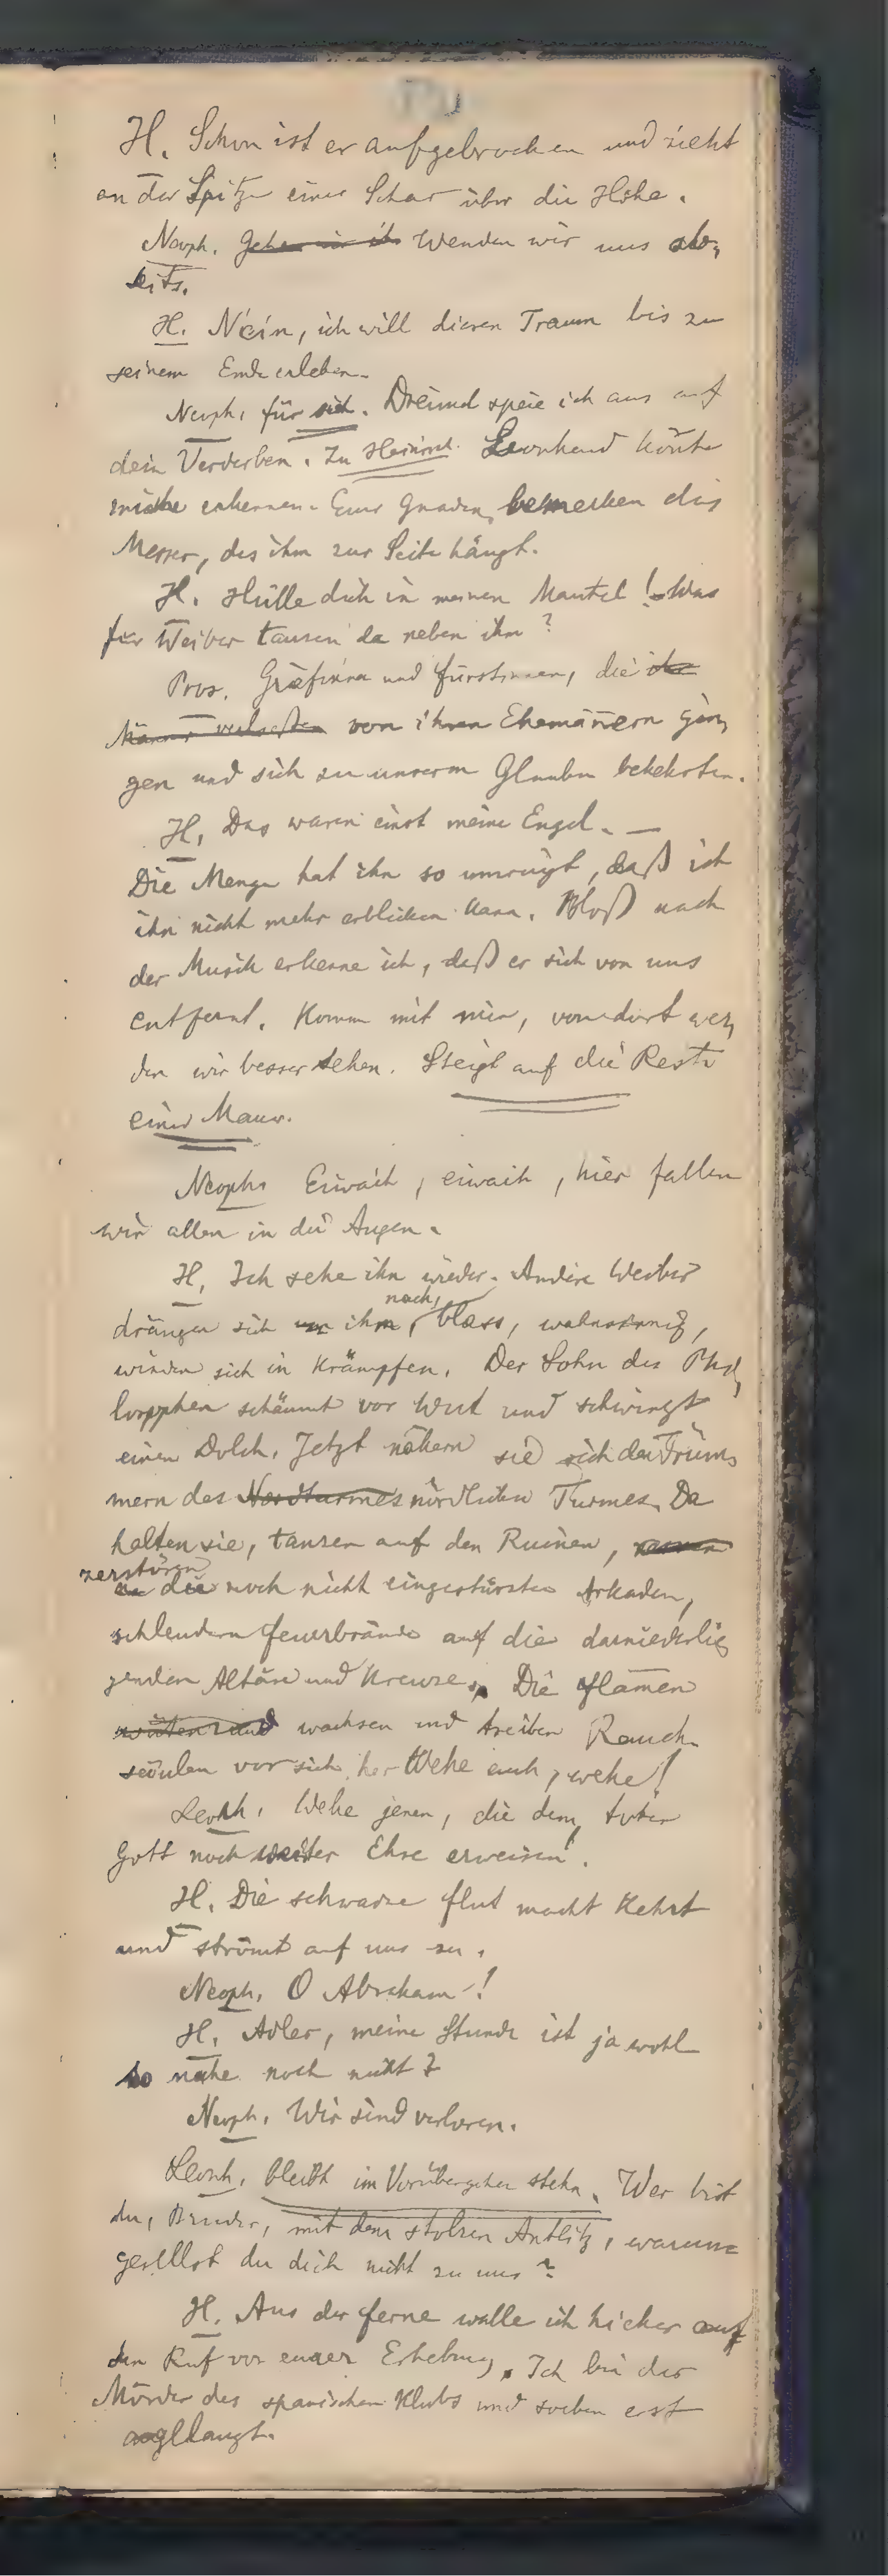 H. Schon ist er aufgebrochen und zieht
an der Spitze einer Schar über die Höhe.
Neoph. Gehen wir ih Wenden wir uns ab,
seits.
H. Nein, ich will diesen Traum bis zu
seinem Ende erleben.
Neoph. für sich. Dreimal speie ich aus auf
dein Verderben. Zu Heinrich. Leonhard könte
mich erkennen. Euer Gnaden, bemerken das
Messer, das ihm zur Seite hängt.
H. Hülle dich in meinen Mantel! Was
für Weiber tanzen da neben ihm?
Gräfinnen und Fürstinnen, die ihre
Männer verließen von ihren Ehemänern gin,
gen und sich zu unserem Glauben bekehrten.
H. Das waren einst meine Engel. —
Die Menge hat ihn so umringt, daß ich
ihn nicht mehr erblicken kann. Bloß nach
der Musik erkenne ich, daß er sich von uns
entfernt. Komm mit mir, von dort wer,
den wir besser sehen. Steigt auf die Reste
einer Mauer.
Neoph. Eiwaih, eiwaih, hier fallen
wir allen in die Augen.
H. Ich sehe ihn wieder. Andere Weiber
nach,
drängen sich ihm, blass, wahnsinnig,
winden sich in Krämpfen. Der Sohn des Phi,
losophen schäumt vor Wut und schwingt
einen Dolch. Jetzt nähern sie sich den Trüm,
mern des Nordturmes nördlichen Turmes. Da
halten sie, tanzen auf den Ruinen,
zerstören
die noch nicht eingestürzten Arkaden,
schleudern Feuerbrände auf die darniederlie,
genden Altäre und Kreuze. Die Flamen
wüten und wachsen und treiben Rauch-
säulen vor sich her Wehe euch, wehe!
Leonh. Wehe jenen, die dem toten
Gott noch weiter Ehre erweisen.
H. Die schwarze Flut macht Kehrt
und strömt auf uns zu.
Neoph. O Abraham!
H. Adler, meine Stunde ist ja wohl
so nahe noch nicht?
Neoph. Wir sind verloren.
Leonh. bleibt im Vorübergehen stehn. Wer bist
du, Bruder, mit dem stolzen Antlitz, warum
gesellst du dich nicht zu uns?
H. Aus der Ferne walle ich hieher auf
den Ruf von eurer Erhebung. Ich bin der
Mörder des spanischen Klubs und soeben erst